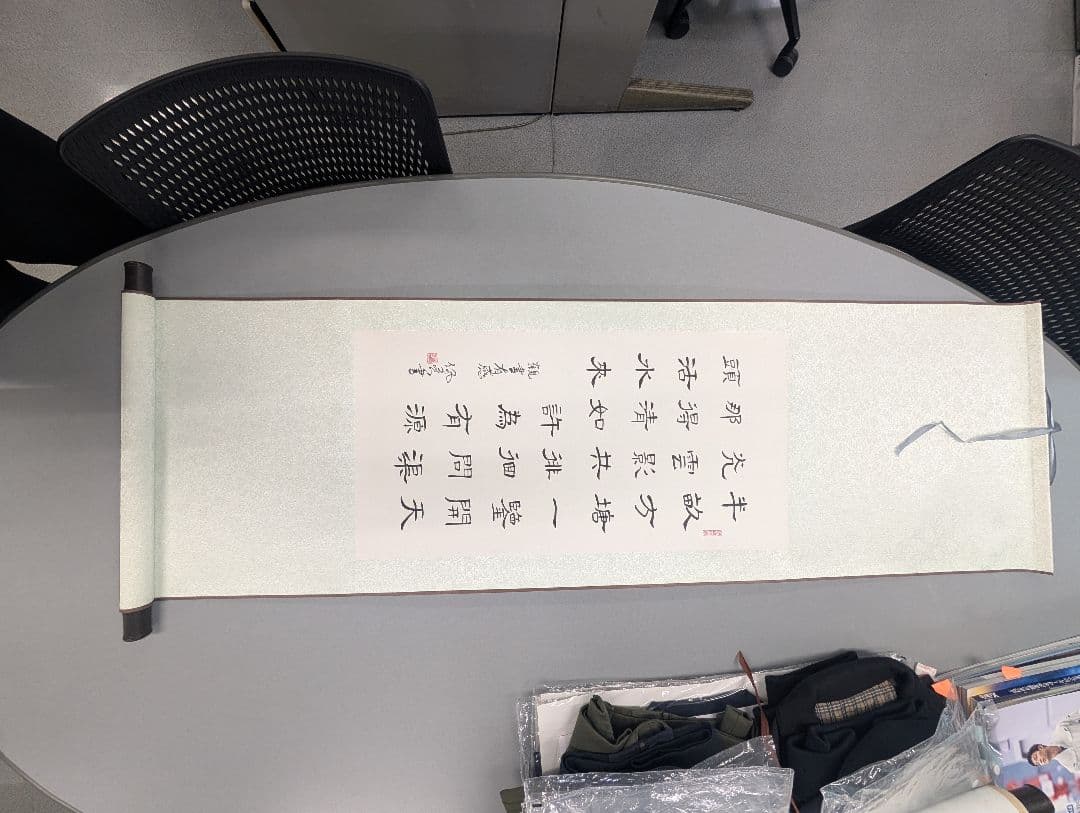 半畝方塘一鑒開天
光雲影共徘徊問渠
那得清如許為有源
頭活水來
觀書有感